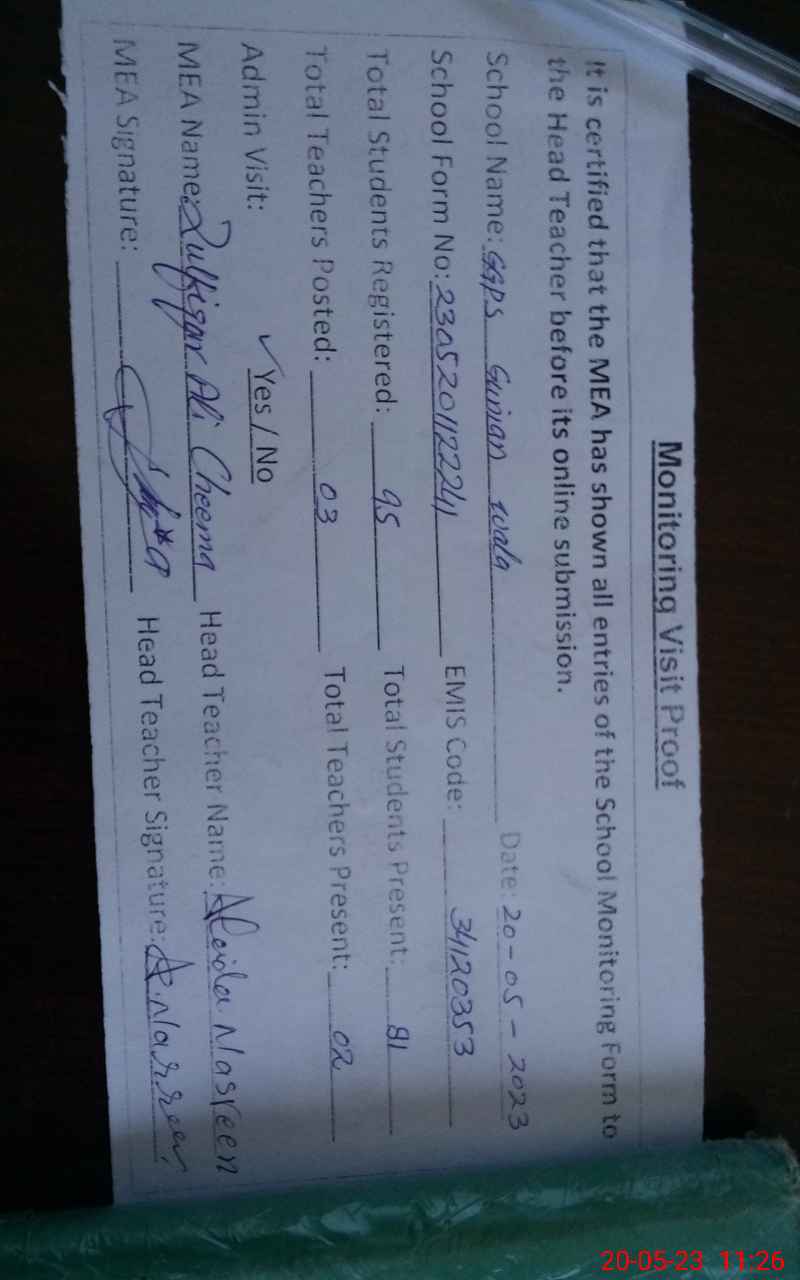 Monitoring Visit Proof
It is certified that the MEA has shown all entries of the School Monitoring Form to
the Head Teacher before its online submission.
School Name: GGPS Gunian wala Date: 20-05-2023
School Form No: 2305201122241 EMIS Code: 34120353
Total Students Registered: 95 Total Students Present: 81
Total Teachers Posted: 03 Total Teachers Present: 02
Admin Visit: ✓ Yes / No
MEA Name: Zulfiqar Ali Cheema Head Teacher Name: Nasreen
MEA Signature: Head Teacher Signature: A. Nasreen
20-05-23 11:26